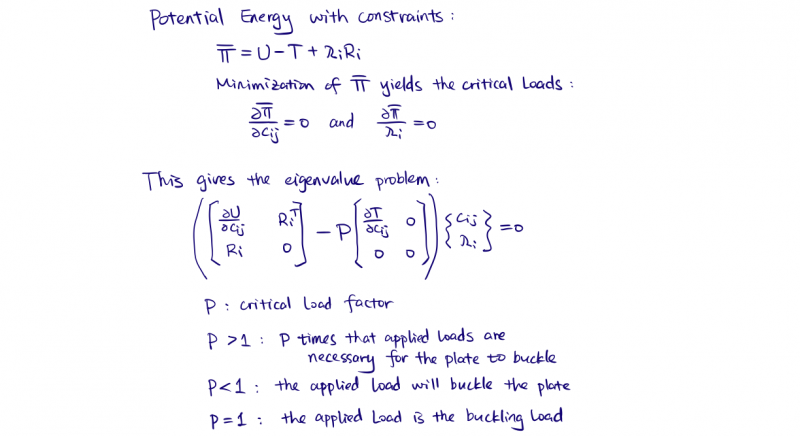 Potential Energy with constraints :
Π̅ = U - T + λiRi
Minimization of Π̅ yields the critical loads :
∂Π̅/∂Cij = 0 and ∂Π̅/λi = 0
This gives the eigenvalue problem :
([∂U/∂Cij RiT; Ri 0] - P[∂T/∂Cij 0; 0 0]){Cij; λi} = 0
P : critical load factor
P > 1 : P times that applied loads are
necessary for the plate to buckle
P < 1 : the applied load will buckle the plate
P = 1 : the applied Load is the buckling load